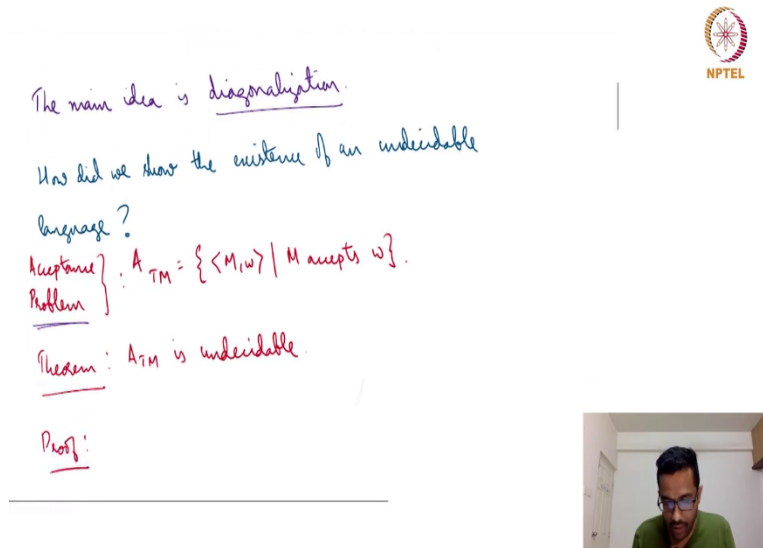 NPTEL
The main idea is diagonalization.
How did we show the existence of an undecidable
language?
Acceptance
Problem } : A TM = {<M,w> | M accepts w}.
Theorem: A TM is undecidable.
Proof: